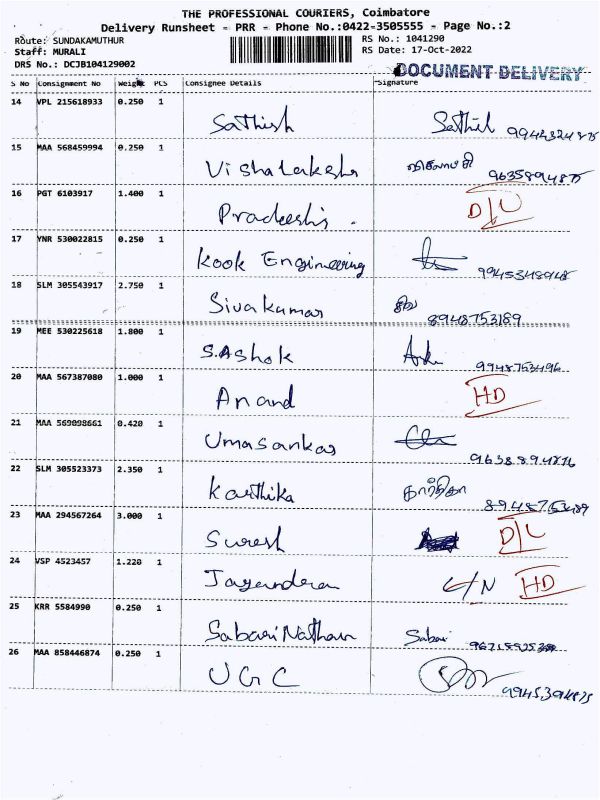 THE PROFESSIONAL COURIERS, Coimbatore
Delivery Runsheet - PRR - Phone No.:0422-3505555 - Page No.:2
Route: SUNDAKAMUTHUR RS No.: 1041290
Staff: MURALI RS Date: 17-Oct-2022
DRS No.: DCJB104129002 DOCUMENT DELIVERY
S No Consignment No Weight PCS Consignee Details Signature
14 VPL 215618933 0.250 1
Sathish
15 MAA 568459994 0.250 1
Vishalakshi 9635894875
16 PGT 6103917 1.400 1
Pradeeshis. D/L
17 YNR 530022815 0.250 1
Kook Engineering 9945348948
18 SLM 305543917 2.750 1
Sivakumar 8948753189
19 MEE 530225618 1.800 1
S.Ashok 9948753496
20 MAA 567387080 1.000 1
Anand HD
21 MAA 569098661 0.420 1
Umasankar 9638894876
22 SLM 305523373 2.350 1
Karthika கார்த்திகா
8948753489
23 MAA 294567264 3.000 1
Suresh D/L
24 VSP 4523457 1.220 1
C/N HD
25 KRR 5584990 0.250 1
Sabari Nathan Sabari
26 MAA 858446874 0.250 1
UGC 9945394875